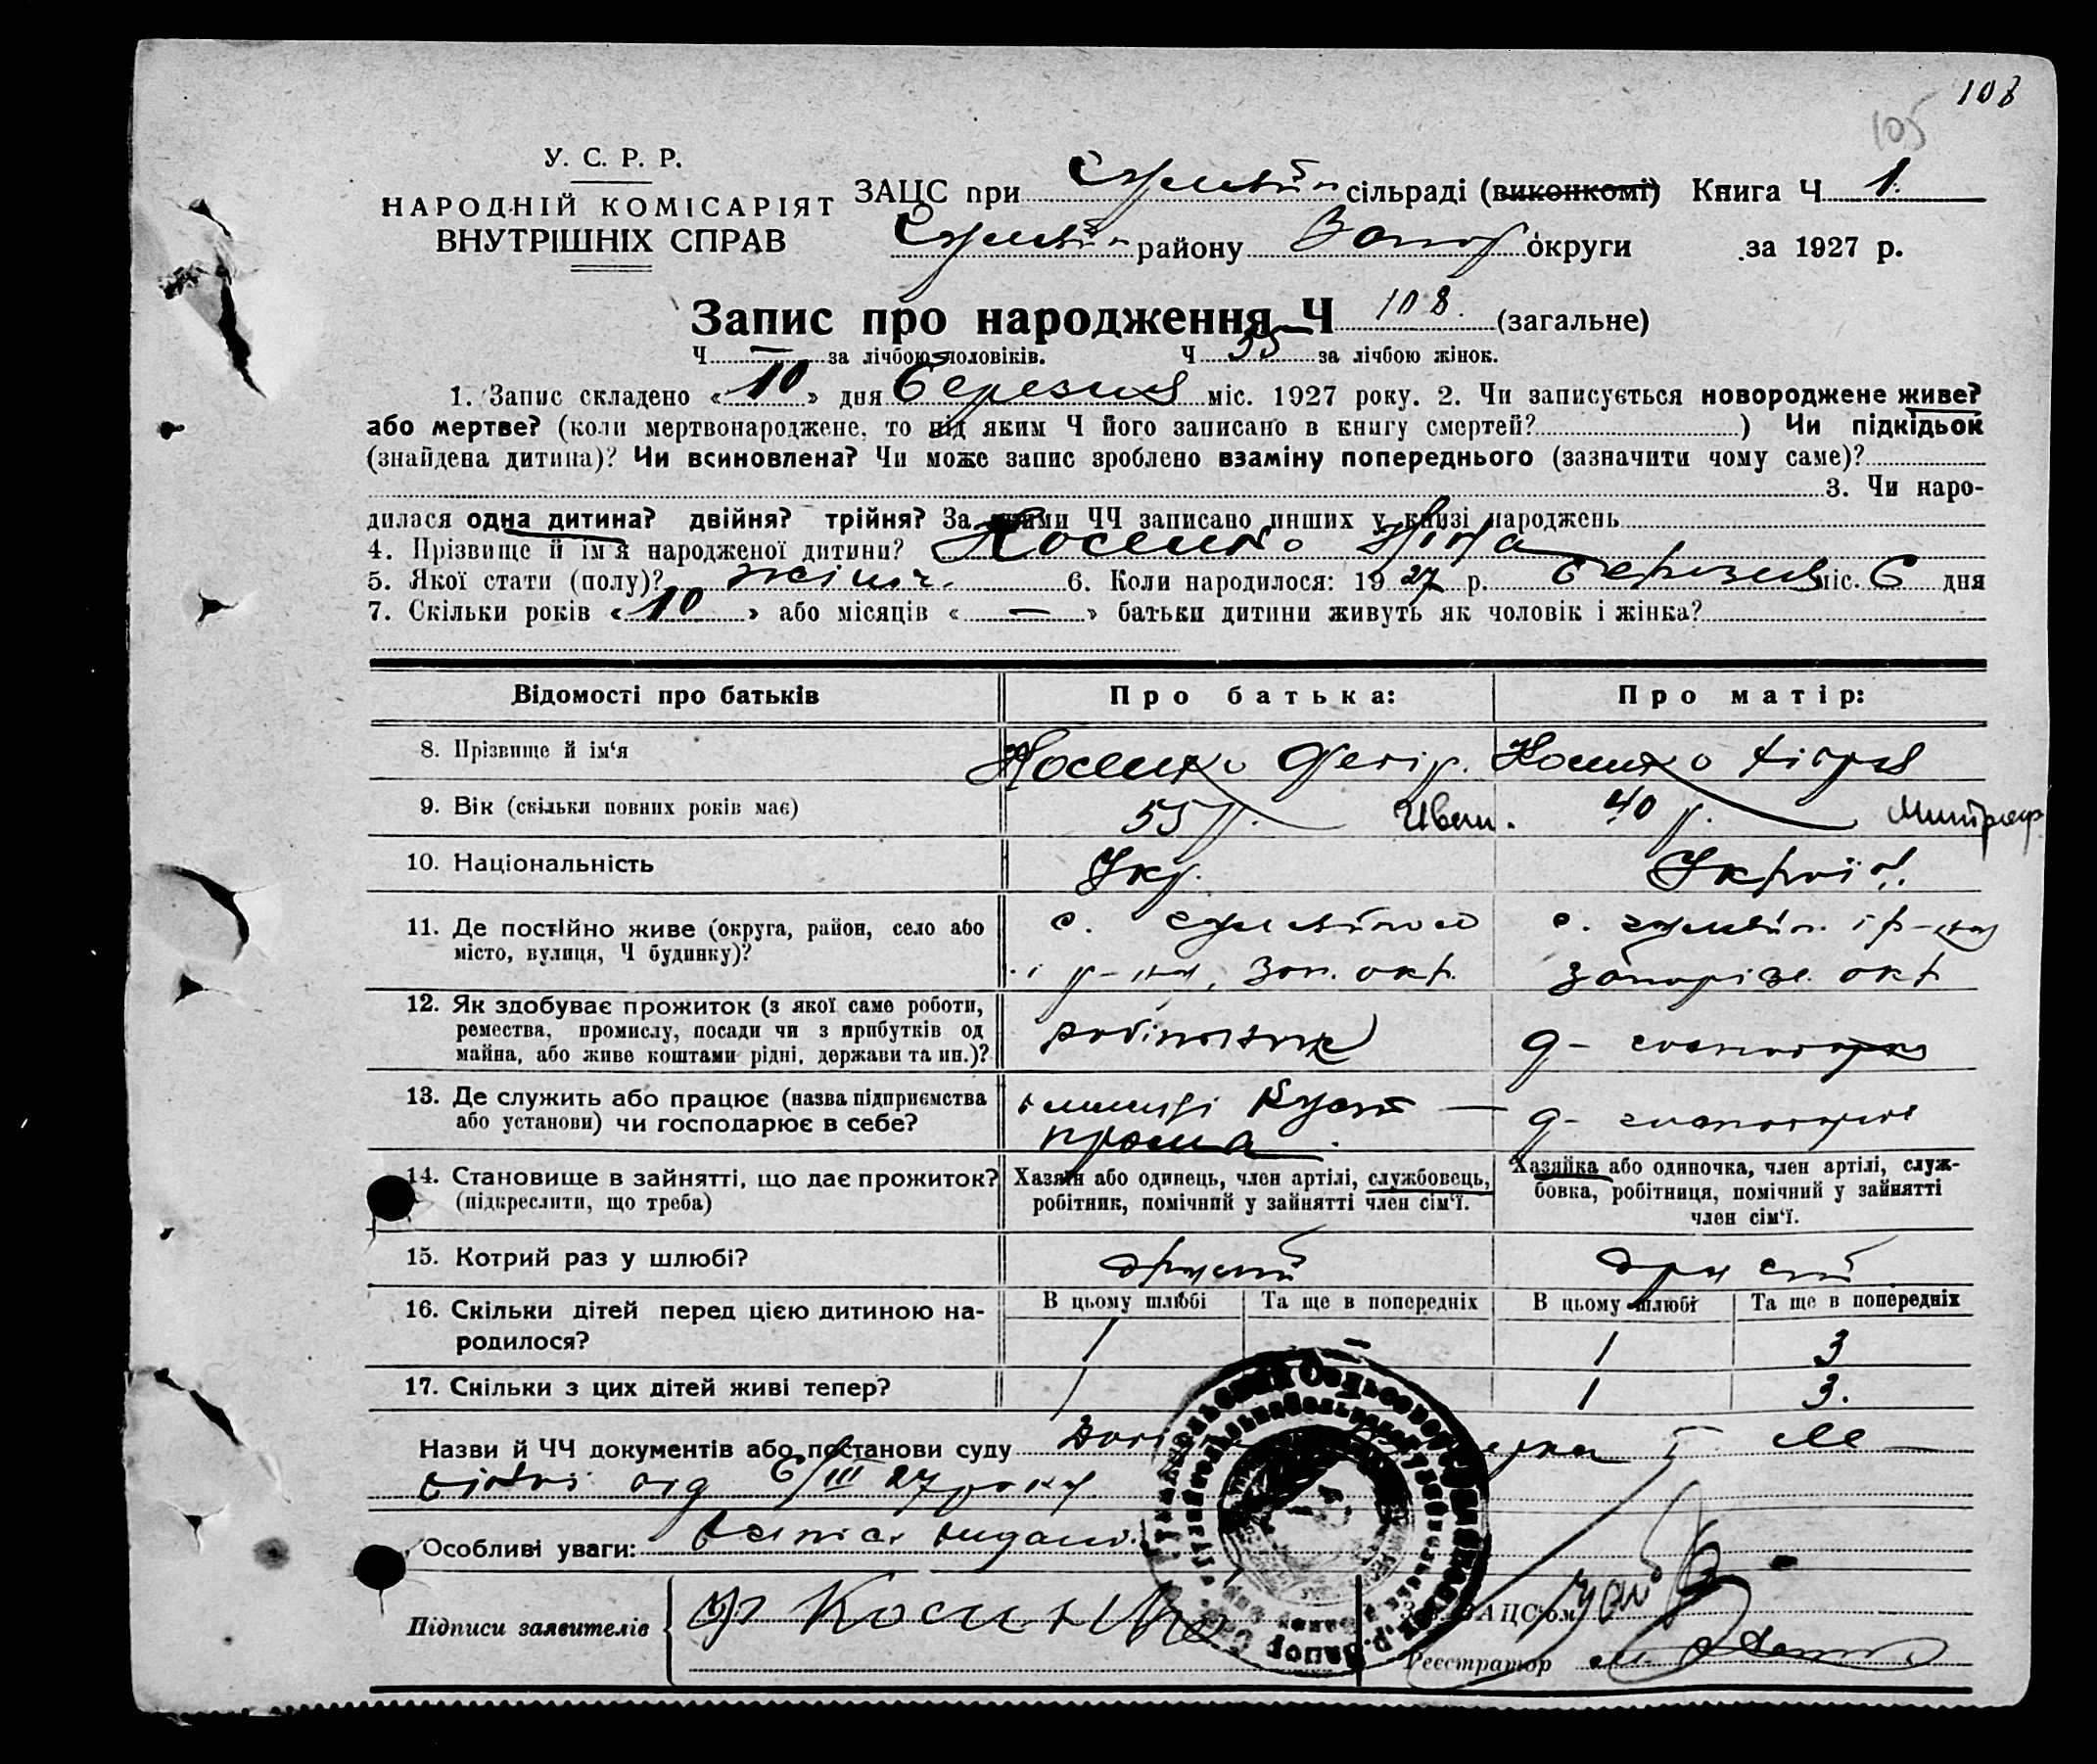 108
105
У. С. Р. Р.
НАРОДНІЙ КОМІСАРІЯТ
ВНУТРІШНІХ СПРАВ
ЗАЦС при сільраді (виконкомі) Книга Ч 1.
району Запор округи за 1927 р.
Запис про народження Ч 108. (загальне)
Ч — за лічбою половіків. Ч 55 за лічбою жінок.
1. Запис складено « 10 » дня березня міс. 1927 року. 2. Чи записується новороджене живе?
або мертве? (коли мертвонароджене, то під яким Ч його записано в книгу смертей? ) Чи підкідьок
(знайдена дитина)? Чи всиновлена? Чи може запис зроблено взаміну попереднього (зазначити чому саме)?
3. Чи наро-
дилася одна дитина? двійня? трійня? За якими ЧЧ записано инших у книзі народжень
4. Прізвище й ім'я народженої дитини? Косенко Ніна
5. Якої стати (полу)? жіноч. 6. Коли народилося: 1927 р. березня міс. 6 дня
7. Скільки років « 10 » або місяців « — » батьки дитини живуть як чоловік і жінка?
Відомості про батьків Про батька: Про матір:
8. Прізвище й ім'я Косенко Федір. Косенко
9. Вік (скільки повних років має) 55 р. Иван. 40 р. Митроф
10. Національність Укр. Україн.
11. Де постійно живе (округа, район, село або
місто, вулиця, Ч будинку)?
с. с. і р-ну
і р-ну, Зап. окр. Запоріж. окр
12. Як здобуває прожиток (з якої саме роботи,
ремества, промислу, посади чи з прибутків од
майна, або живе коштами рідні, держави та ин.)?
робітник д- господарка
13. Де служить або працює (назва підприємства
або установи) чи господарює в себе?
Куст —
прома. д- господарює
14. Становище в зайнятті, що дає прожиток?
(підкреслити, що треба)
Хазяїн або одинець, член артілі, службовець,
робітник, помічний у зайнятті член сім'ї.
Хазяйка або одиночка, член артілі, служ-
бовка, робітниця, помічний у зайнятті
член сім'ї.
15. Котрий раз у шлюбі? другий другий
16. Скільки дітей перед цією дитиною на-
родилося?
В цьому шлюбі Та ще в попередніх В цьому шлюбі Та ще в попередніх
1 — 1 3
17. Скільки з цих дітей живі тепер? 1 1 3.
Назви й ЧЧ документів або постанови суду
від 6/III 27 року
Особливі уваги:
Підписи заявителів Косенко
Зав. ЗАЦС'ом
Реєстратор